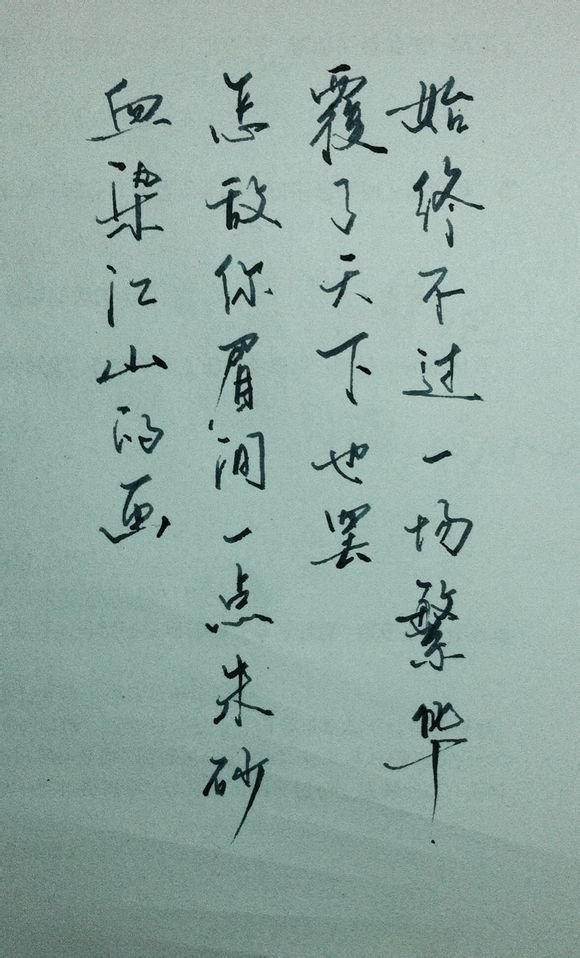 血染江山的画
怎敌你眉间一点朱砂
覆了天下也罢
始终不过一场繁华